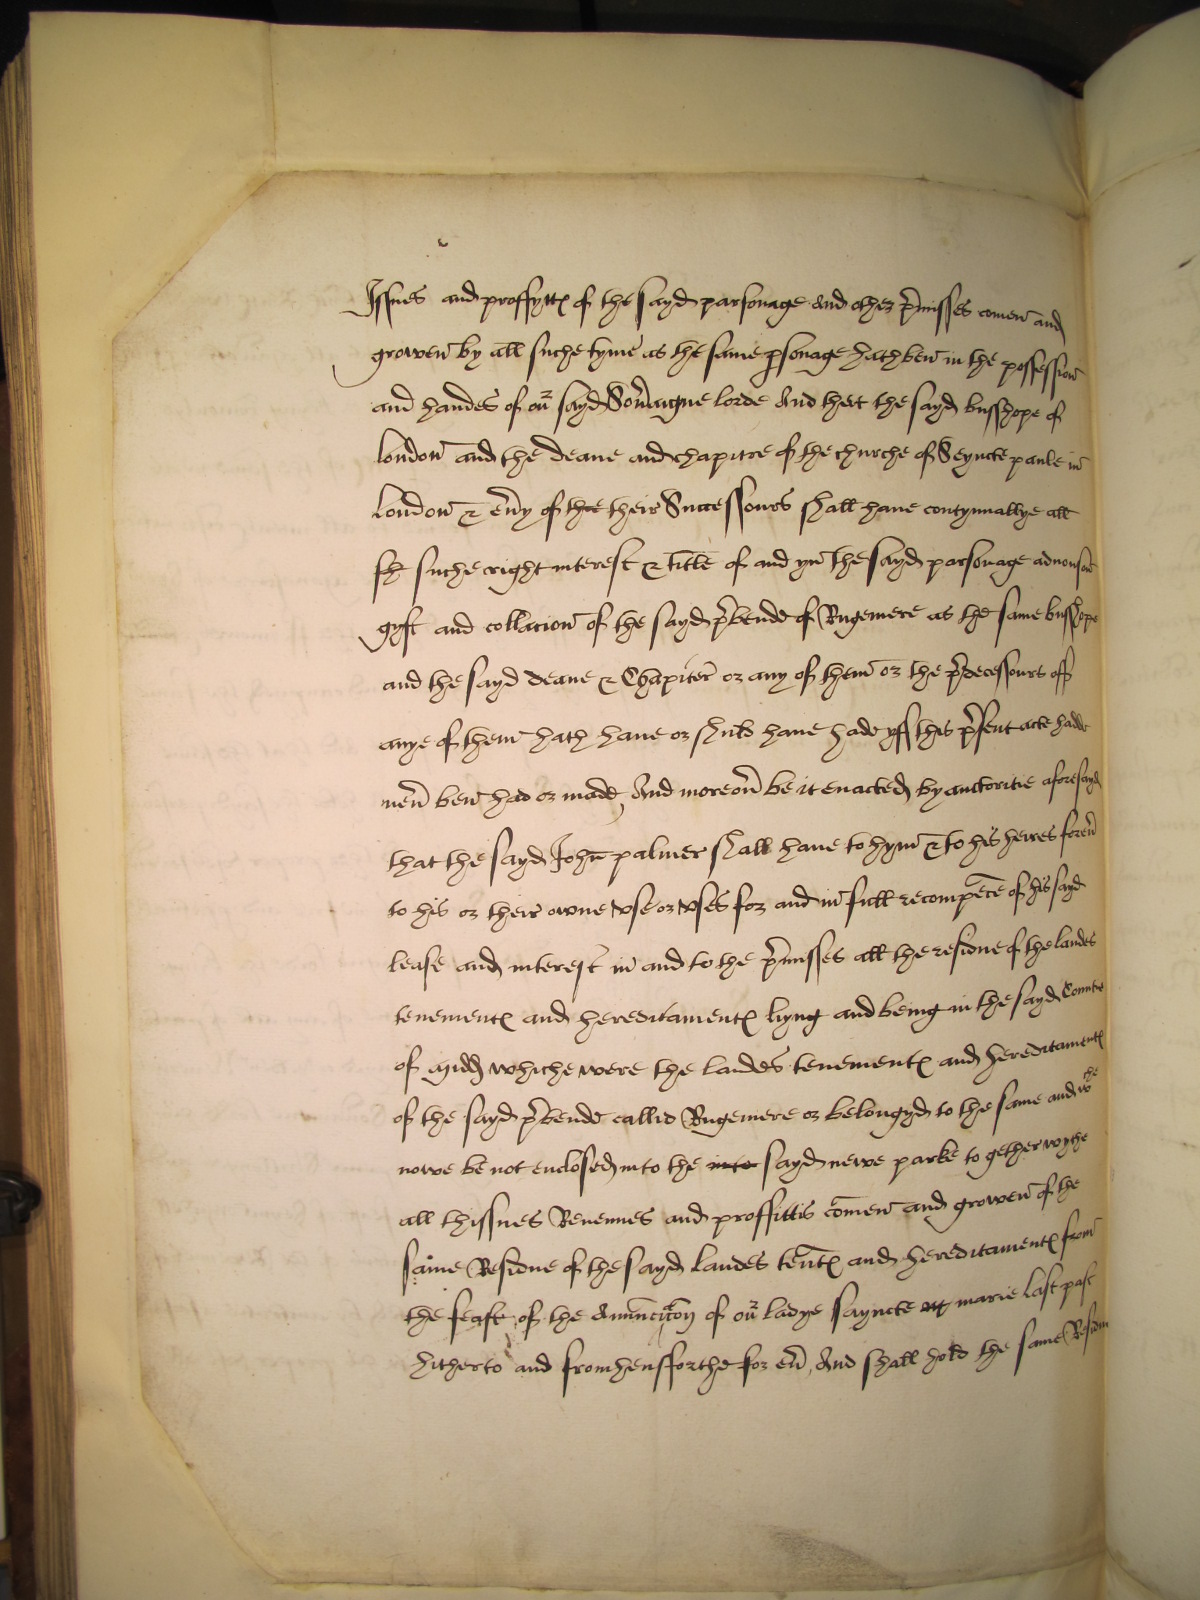 Issues and proffyttes of the sayd parsonage And other p̄misses comen and
growen by all suche tyme as the same psonage hath ben in the possession
and handes of our sayd Sov̄aigne lorde And that the sayd busshope of
london and the deane and chapitre of the churche of Seyncte paule in
london & ev̄y of the their Successours shall haue contynuallye all
suche right interest & title of and yn the sayd parsonage advouson
gyft and collacion of the sayd p̄bende of Rugemere as the same busshope
and the sayd deane & Chapiter or any of them or the p̄decessours off
anye of them hath haue or shuld haue hade yff this p̄sent acte hadde
nev̄ ben had or made, And moreov̄ be it enacted by auctoritie aforesayd
that the sayd John palmer shall haue to hym & to his heires forev̄
to his or their owne vse or vses for and in full recompēce of his sayd
lease and interest in and to the p̄misses all the residue of the landes
tenementes and hereditamentes liyng and being in the sayd Countie
of Midd whiche were the landes tenementes and hereditamentes
of the sayd p̄bende callid Rugemere or belongyd to the same and wche
nowe be not enclosed into the into sayd newe parke to gether wythe
all thissues Revenues and proffittis cōmen and growen of the
same Residue of the sayd landes tent̄es and hereditamentes from
the feast of the Annūciac̄on of our ladye sayncte marie last past
hitherto and from hensforthe for ev̄, And shall hold the same Residu